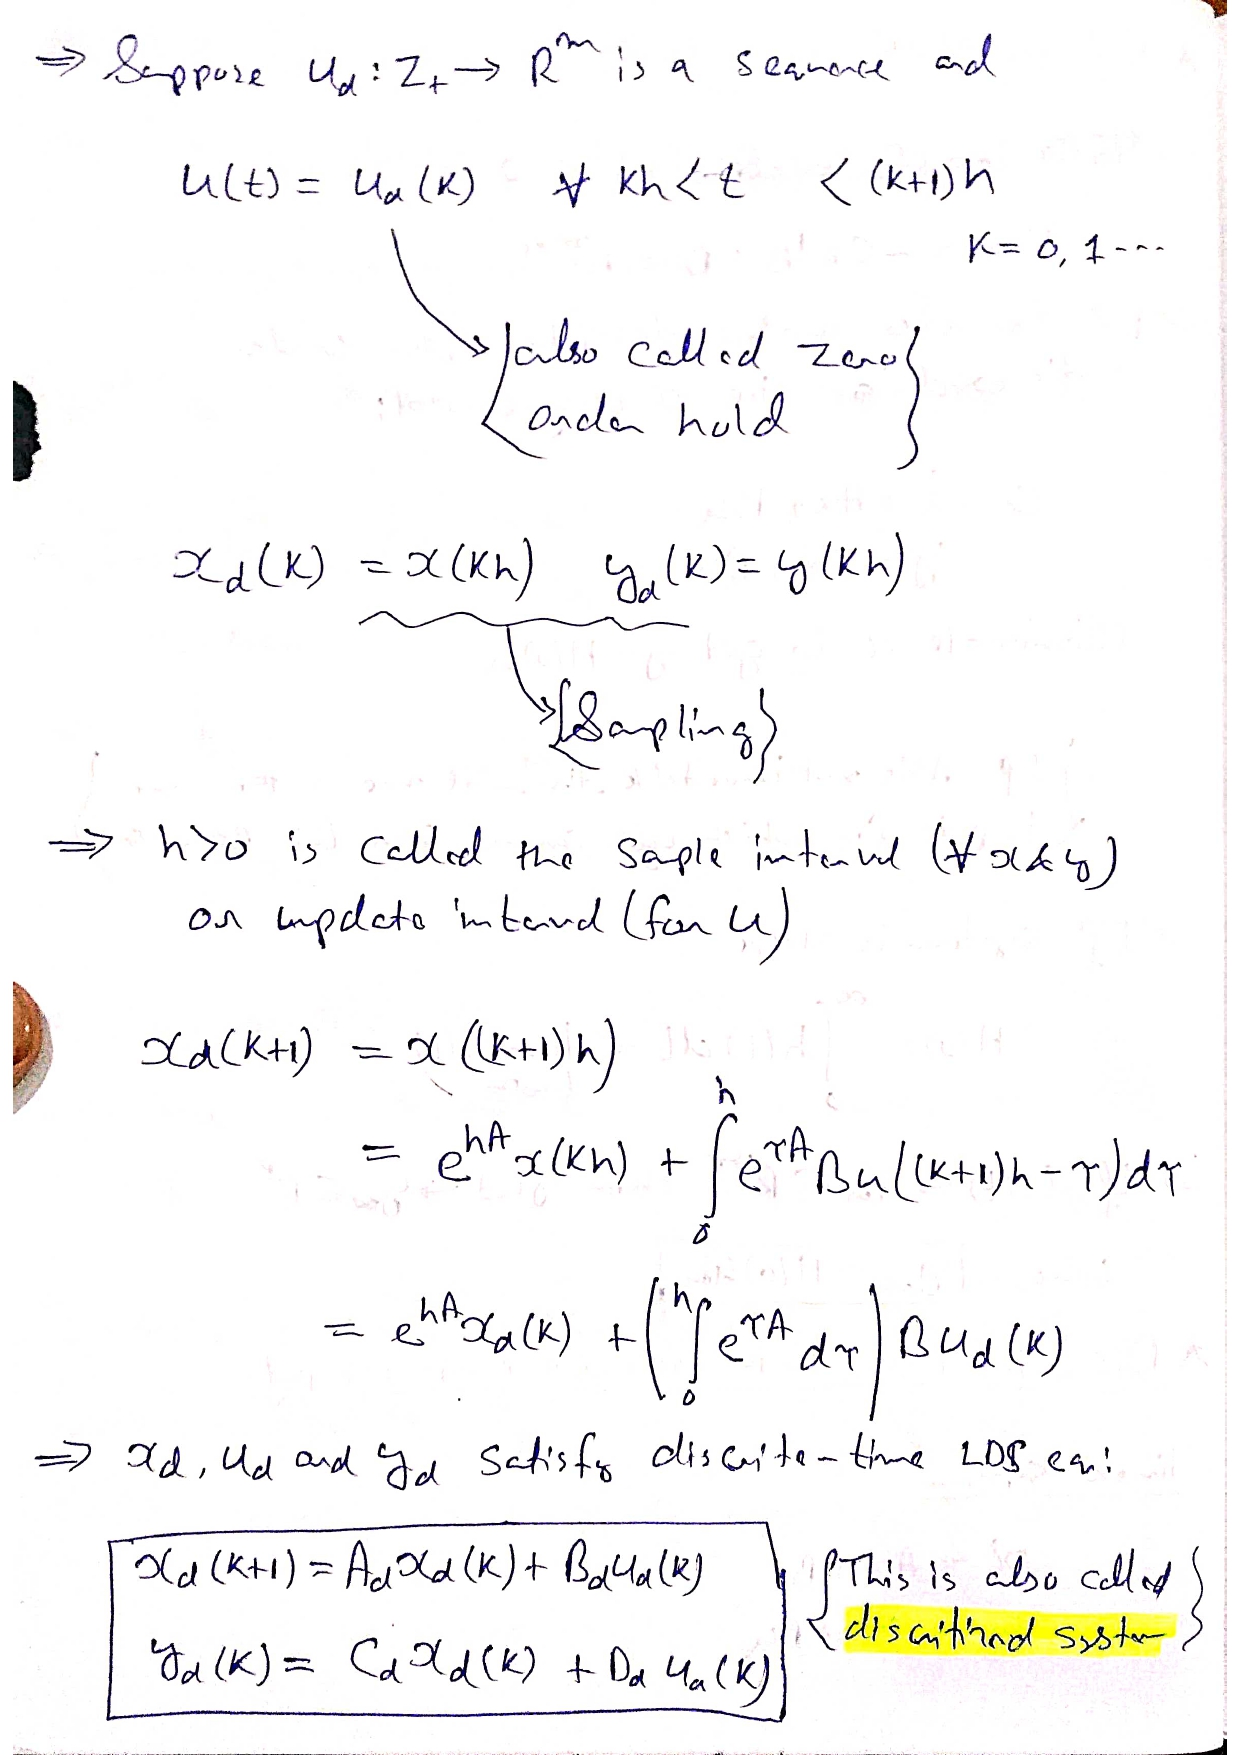 ⇒ Suppose u_d : Z_+ → R^m is a sequence and
u(t) = u_d(k) ∀ kh < t < (k+1)h
k = 0, 1 ---
{also called zero
order hold}
x_d(k) = x(kh) y_d(k) = y(kh)
{Sampling}
⇒ h>0 is called the saple interval (∀ x & y)
or update interval (for u)
x_d(k+1) = x((k+1)h)
= e^{hA} x(kh) + ∫_0^h e^{τA} B u((k+1)h - τ) dτ
= e^{hA} x_d(k) + (∫_0^h e^{τA} dτ) B u_d(k)
⇒ x_d, u_d and y_d satisfy discrite-time LDS eq:
x_d(k+1) = A_d x_d(k) + B_d u_d(k)
y_d(k) = C_d x_d(k) + D_d u_d(k)
{This is also called
discritized system}